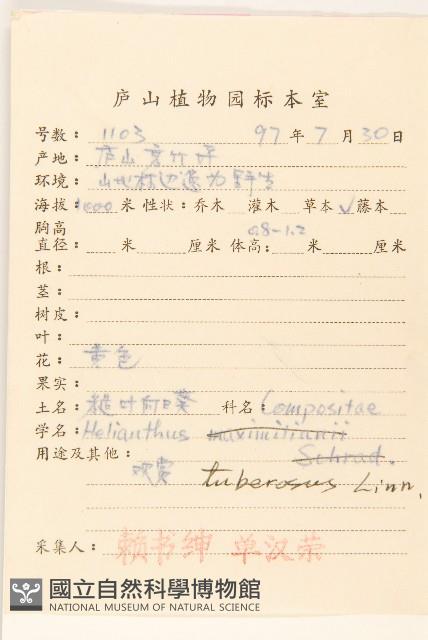 庐山植物园标本室
号数: 1103 97年7月30日
产地: 庐山 竹坪
环境: 山地林边 野生
海拔: 1000米 性状: 乔木 灌木 草本✓藤本
胸高
直径: 米 厘米 体高: 0.8-1.2 米 厘米
根:
茎:
树皮:
叶:
花: 黄色
果实:
土名: 糙叶向日葵 科名: Compositae
学名: Helianthus maximilianii
Schrad.
用途及其他: 欣赏 tuberosus Linn.
采集人: 赖书绅 单汉荣
國立自然科學博物館
NATIONAL MUSEUM OF NATURAL SCIENCE